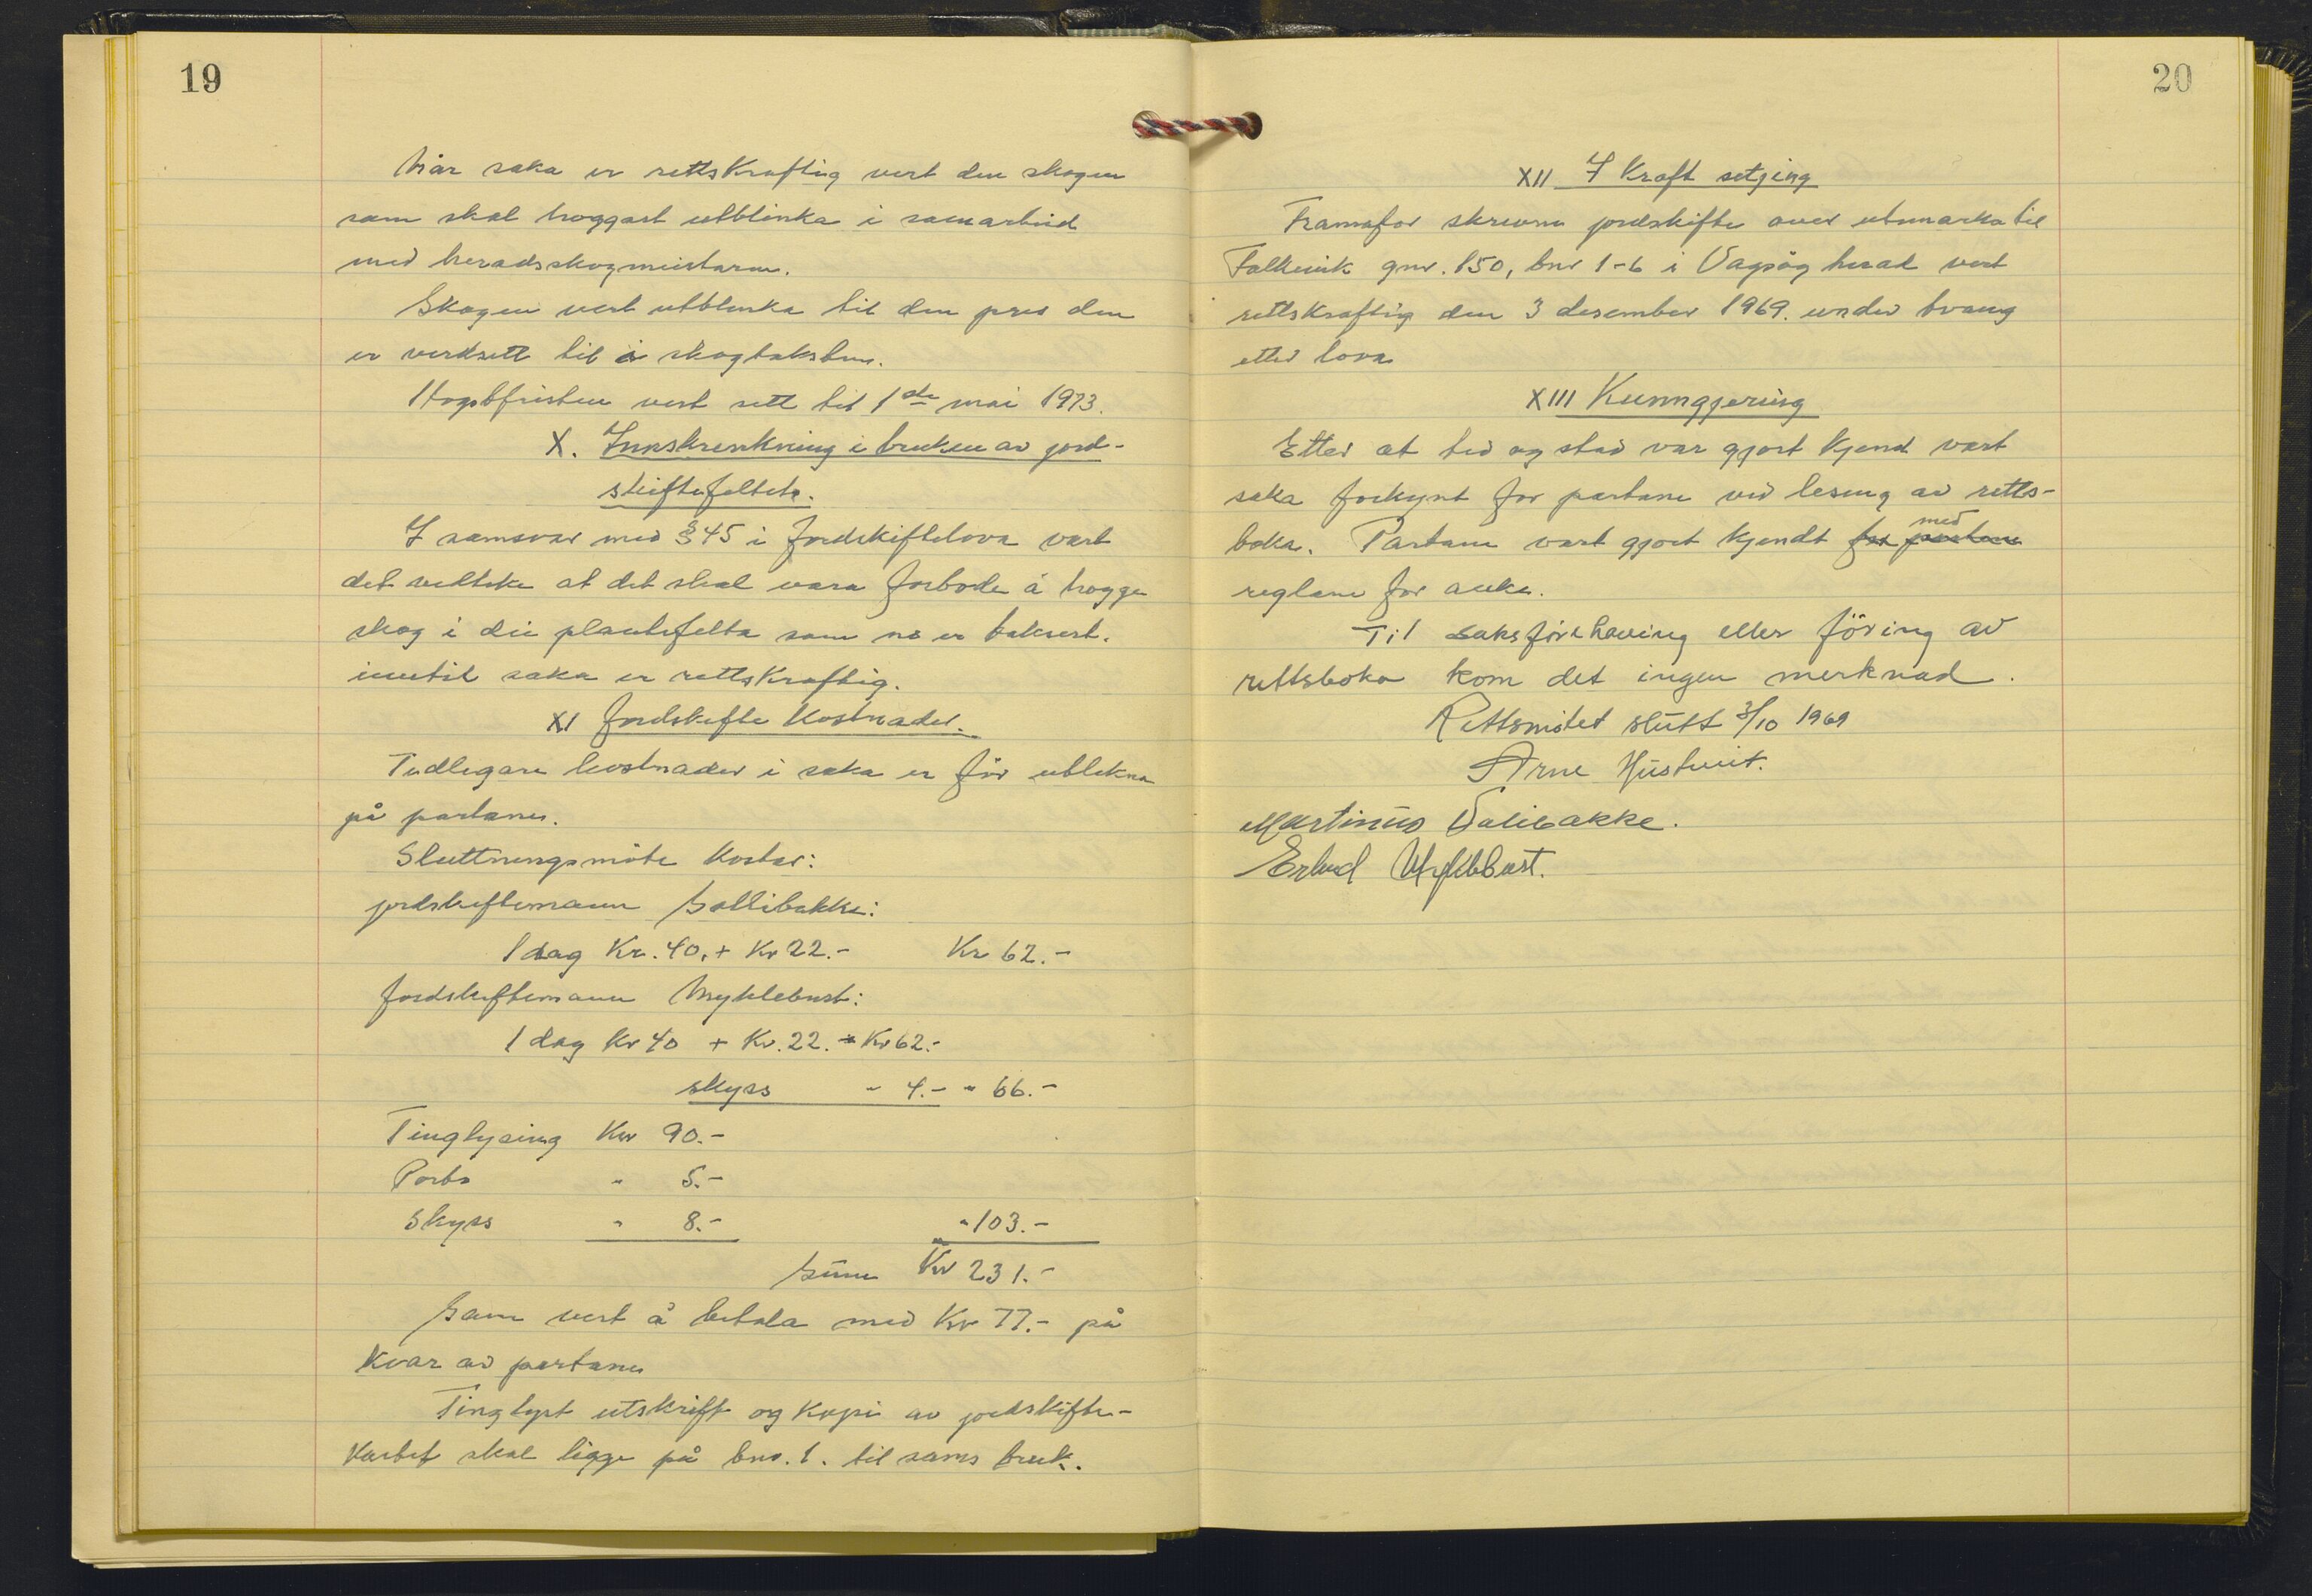 19
Når saka er rettskraftig vert den skogen
som skal hoggast utblinka i samarbeid
med heradsskogmeistaren.
Skogen vert utblinka til den pris den
er verdsett til i skogtaksten.
Hogstfristen vert sett til 1ste mai 1973.
X. Innskrenkning i bruken av jord-
skiftefeltet.
I samsvar med §45 i jordskiftelova vart
det vedteke at det skal vera forbode å hogge
skog i dei plantefelta som no er taksert.
inntil saka er rettskraftig.
XI Jordskifte kostnader.
Tidlegare kostnader i saka er før utlikna
på partane.
Sluttningsmöte kostar:
jordskiftemann Sallibakke:
1 dag Kr. 40,+ Kr 22.- Kr 62.-
Jordskiftemann Myklebust:
1 dag Kr 40 + Kr. 22. = Kr 62.-
skyss " 4.- " 66.-
Tinglysing Kr 90.-
Porto " 5.-
Skyss " 8.- " 103.-
Sum Kr 231.-
Som vert å betala med Kr 77.- på
kvar av partane
Tinglyst utskrift og kopi av jordskifte-
kartet skal ligge på bnr. 1. til sams bruk.
20
XII I Kraft setjing
Framafor skrevne jordskifte over utmarka til
Falkevik gnr. 150, bnr 1-6 i Vagsøy herad vert
rettskraftig den 3 desember 1969. under tvang
etter lova
XIII Kunngjering
Etter at tid og stad var gjort kjend vart
saka forkynt for partane ved lesing av retts-
boka. Partane vart gjort kjendt for partane med
reglane for anke.
Til saksförehaving eller föring av
rettsboka kom det ingen merknad.
Rettsmötet slutt 3/10 1969
Arne
Martinus
Erlend